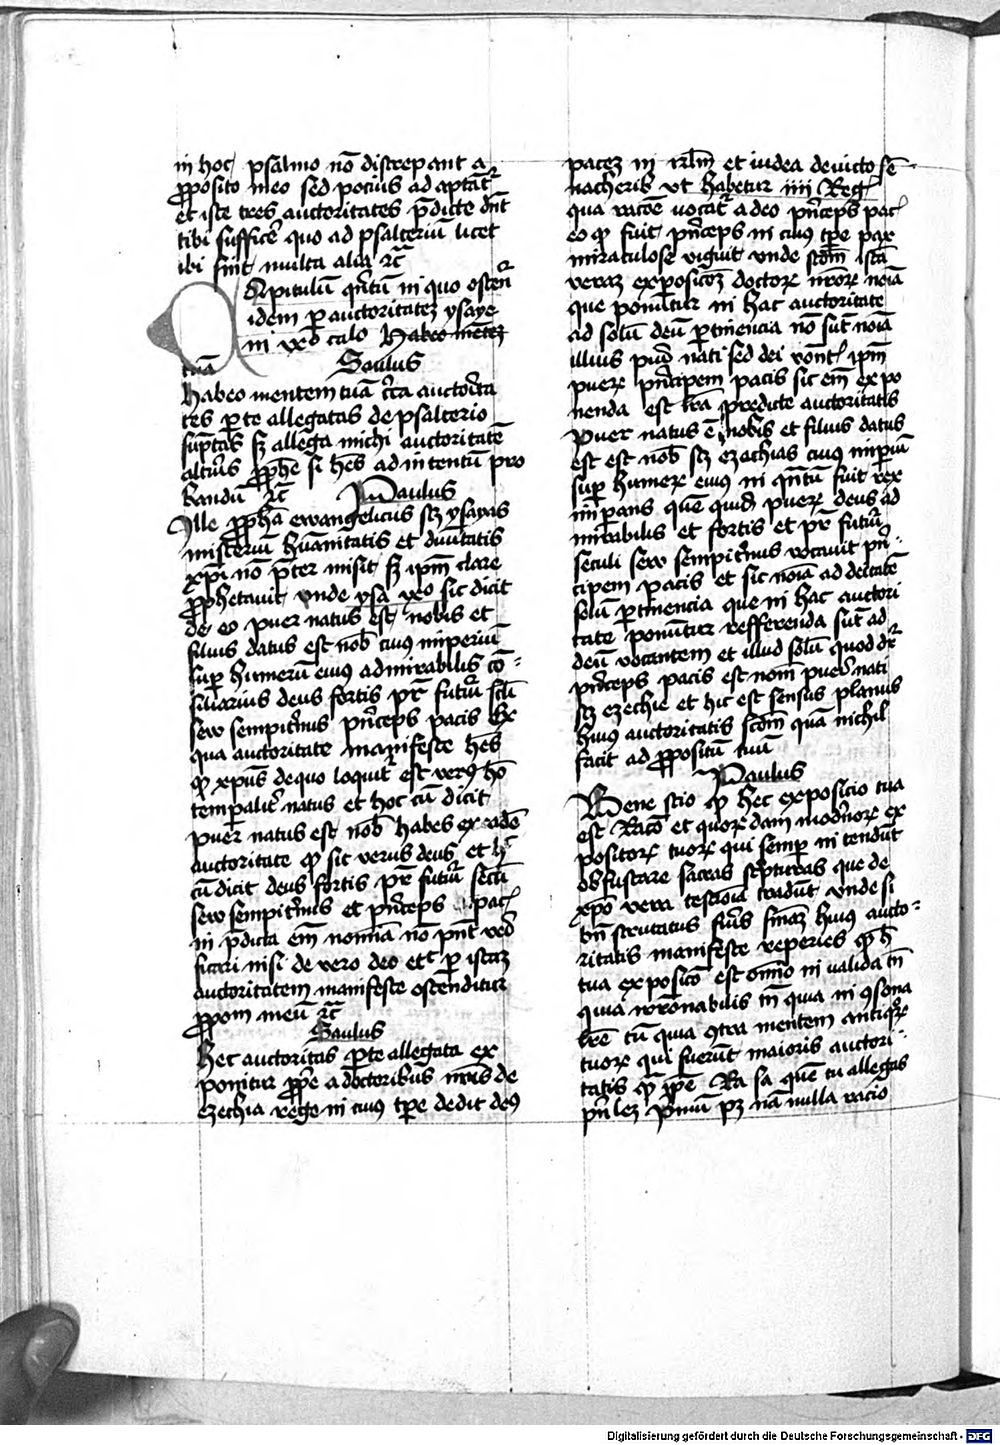 in hoc psalmo nō discrepant a
p̱posito meo sed pocius ad aptāt᷑
et iste tres auctoritates p̄dicte dn̄t
tibi sufficē quo ad psalteriū licet
ibi sint multa alia ⁊c̄
Capitulū qn̄tū in quo ostendit᷑
idem p̱ auctoritatez ysaye
in ıxo calo Habeo mētez
tuā Saulus
Habeo mentem tuā circa auctorita
tes p̱ te allegatas de psalterio
sūptas sꝫ allega michi auctoritatē
alteriꝰ p̱phe si hēs ad intentū pro
bandū ⁊c̄ Paulus
Ille p̱pha ewangelicus scꝫ ysayas
misteriū hūanitatis et diuītatis
xp̄i nō p̄ter misit sꝫ ip̄m clare
p̱phetauit vnde ysa ıxo sic dicit
de eo puer natus est nobis et
filius datus est nob̄ cuius imperiū
sup̱ humerū eius admirabilis cō-
siliarius deus fortis pr̄ futuri scl̄i
seu sempitn̄us p̄nceps pacis Ex
qua auctoritate manifeste hēs
qp̱ xp̄us de quo loquit᷑ est verꝰ hō
temp̱alit᷑ natus et hoc cū dicit
puer natus est nob̄ habes ex eadē
auctoritate qp̱ sic verus deus et h̄
cū dicit deus fortis pr̄ futuri secli
seu sempitn̄us et p̄nceps pacꝭ
in p̄dicta em̄ nomīa nō pn̄t veri
ficari nisi de vero deo etc̄ p̱ istaz
auctoritatem manifeste ostenditur
p̱pom meū ⁊c̄
Saulus
Hec auctoritas p̱ te allegata ex
ponitur p̱pe a doctoribus nr̄is de
ezechia rege in cuiꝰ tp̱e dedit deꝰ
pacez in irl̄m et iudea deuicto sē-
nacherib vt habetur iiii Reg᷑
qua racōe vocat᷑ a deo p̄nceps pacꝭ
eo qp̱ fuit p̄nceps in cuiꝰ tp̱e pax
miraculose viguit vnde scd̄m istā
veraz exposicōez doctorꝝ nr̄orꝝ noīa
que ponūtur in hac auctoritate
ad solū deū p̱tinencia nō sūt noīa
illius pueri nati sed dei vocantꝭ ip̄m
puerꝝ p̄ncipem pacis sic em̄ expo
nenda est lr̄a predicte auctoritatis
Puer natus ē nobis et filius datus
est est nob̄ scꝫ ezechias cuius imperiū
sup̱ humerꝝ eius in qn̄tū fuit rex
imperans quē quidē puerꝝ deus ad
mirabilis et fortis et pr̄ futuri
seculi seu sempitn̄us vocauit pri-
cipem pacis et sic noīa ad deitatē
solū p̱tinencia que in hac auctori
tate ponūtur refferenda sūt ad
deū vocantem et illud solū quod dr̄
p̄nceps pacis est nom̄ pueri nati
scꝫ ezechie et hic est sensus planus
huiꝰ auctoritatis scd̄m quā nichil
facit ad p̱positū tuū
Paulus
Bene scio qp̱ hec exposicio tua
est Raco et quorꝝ dam modn̄orꝝ ex
positorꝝ tuorꝝ qui semp̱ intendūt
obfuscare sacras scpturas que de
xp̄o vera testimonia tradūt vnde si
bn̄ scrutatus fuꝰis finaꝫ huiꝰ aucto-
ritatis manifeste reperies qp̱ h̄
tua exposicō est omnīo in valida tn̄
quia irrōnabilis tn̄ quia in ꝯsona
lr̄e tū quia ꝯtra mentem antiqꝝ
tuorꝝ qui fuerūt maioris auctori-
tatis qꝫ ip̱e Ra sa quē tu allegas
prīcez pmū pꝫ nā nulla racio